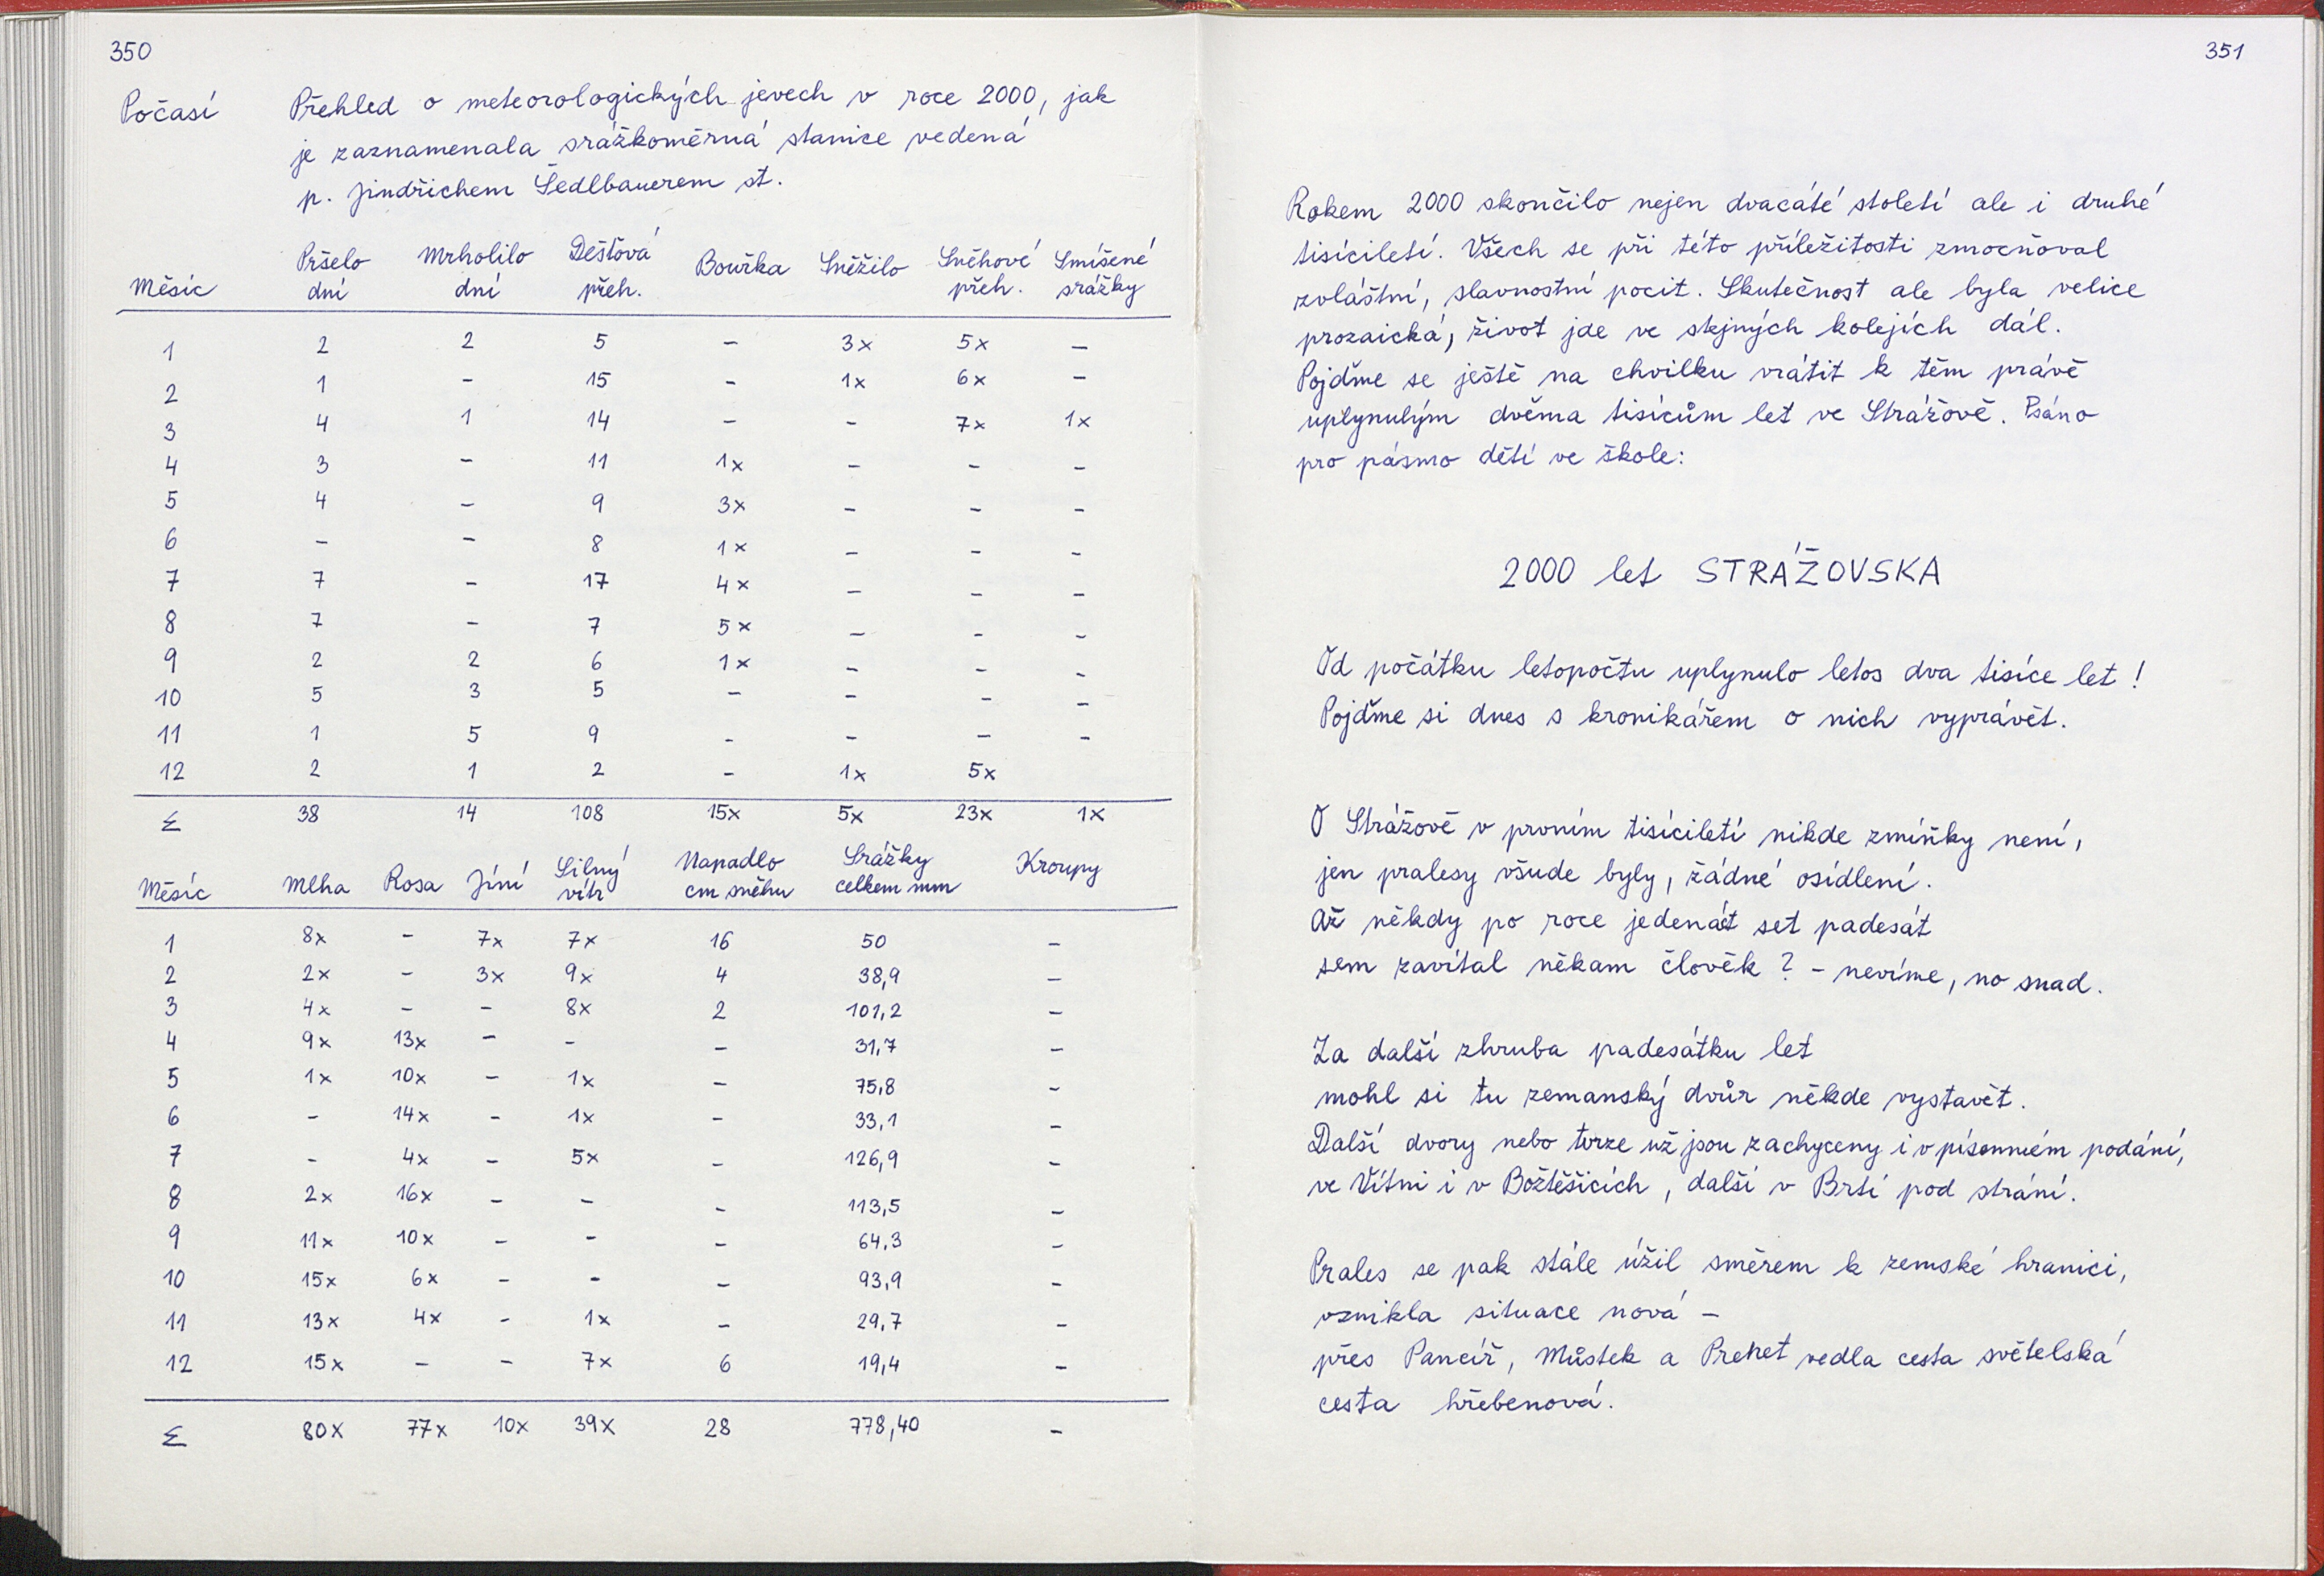 350
Počasí Přehled o meteorologických jevech v roce 2000, jak
je zaznamenala srážkoměrná stanice vedená
p. Jindřichem Šedlbauerem st.
Měsíc Pršelo dní Mrholilo dní Dešťová přeh. Bouřka Sněžilo Sněhové přeh. Smíšené srážky
1 2 2 5 – 3x 5x –
2 1 – 15 – 1x 6x –
3 4 1 14 – – 7x 1x
4 3 – 11 1x – – –
5 4 – 9 3x – – –
6 – – 8 1x – – –
7 7 – 17 4x – – –
8 7 – 7 5x – – –
9 2 2 6 1x – – –
10 5 3 5 – – – –
11 1 5 9 – – – –
12 2 1 2 – 1x 5x
Σ 38 14 108 15x 5x 23x 1x
Měsíc Mlha Rosa Jíní Silný vítr Napadlo cm sněhu Srážky celkem mm Kroupy
1 8x – 7x 7x 16 50 –
2 2x – 3x 9x 4 38,9 –
3 4x – – 8x 2 101,2 –
4 9x 13x – – – 31,7 –
5 1x 10x – 1x – 75,8 –
6 – 14x – 1x – 33,1 –
7 – 4x – 5x – 126,9 –
8 2x 16x – – – 113,5 –
9 11x 10x – – – 64,3 –
10 15x 6x – – – 93,9 –
11 13x 4x – 1x – 29,7 –
12 15x – – 7x 6 19,4 –
Σ 80x 77x 10x 39x 28 778,40 –
351
Rokem 2000 skončilo nejen dvacáté století ale i druhé
tisíciletí. Všech se při této příležitosti zmocňoval
zvláštní, slavnostní pocit. Skutečnost ale byla velice
prozaická, život jde ve stejných kolejích dál.
Pojďme se ještě na chvilku vrátit k těm právě
uplynulým dvěma tisícům let ve Strážově. Psáno
pro pásmo dětí ve škole:
2000 let STRÁŽOVSKA
Od počátku letopočtu uplynulo letos dva tisíce let!
Pojďme si dnes s kronikářem o nich vyprávět.
O Strážově v prvním tisíciletí nikde zmíňky není,
jen pralesy všude byly, žádné osídlení.
Až někdy po roce jedenáct set padesát
sem zavítal někam člověk? – nevíme, no snad.
Za další zhruba padesátku let
mohl si tu zemanský dvůr někde vystavět.
Další dvory nebo tvrze už jsou zachyceny i v písemném podání,
ve Vítni i v Božtěšicích, další v Brtí pod strání.
Prales se pak stále úžil směrem k zemské hranici,
vznikla situace nová –
přes Pancíř, Můstek a Prenet vedla cesta světelská
cesta hřebenová.